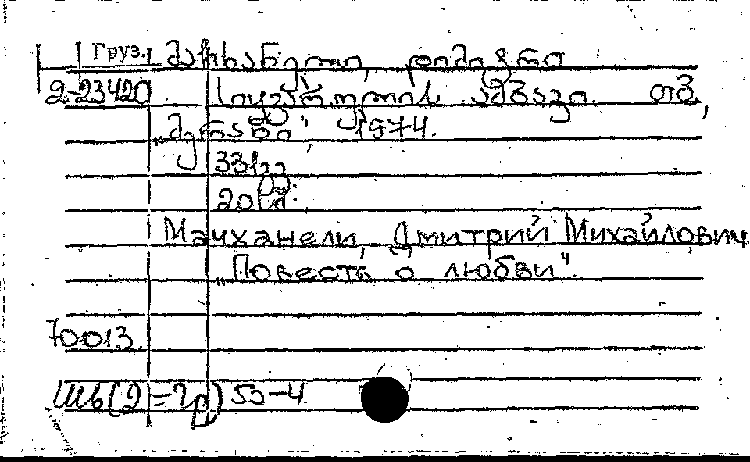 Груз. მაჩხანელი, დიმიტრი
2-23420 სიყვარულის ამბავი. თბ.,
„მერანი", 1974.
33
20კ.
Мачханели, Дмитрий Михайлович
"Повесть о любви".
70013.
Шб(2=Гр) 55-4